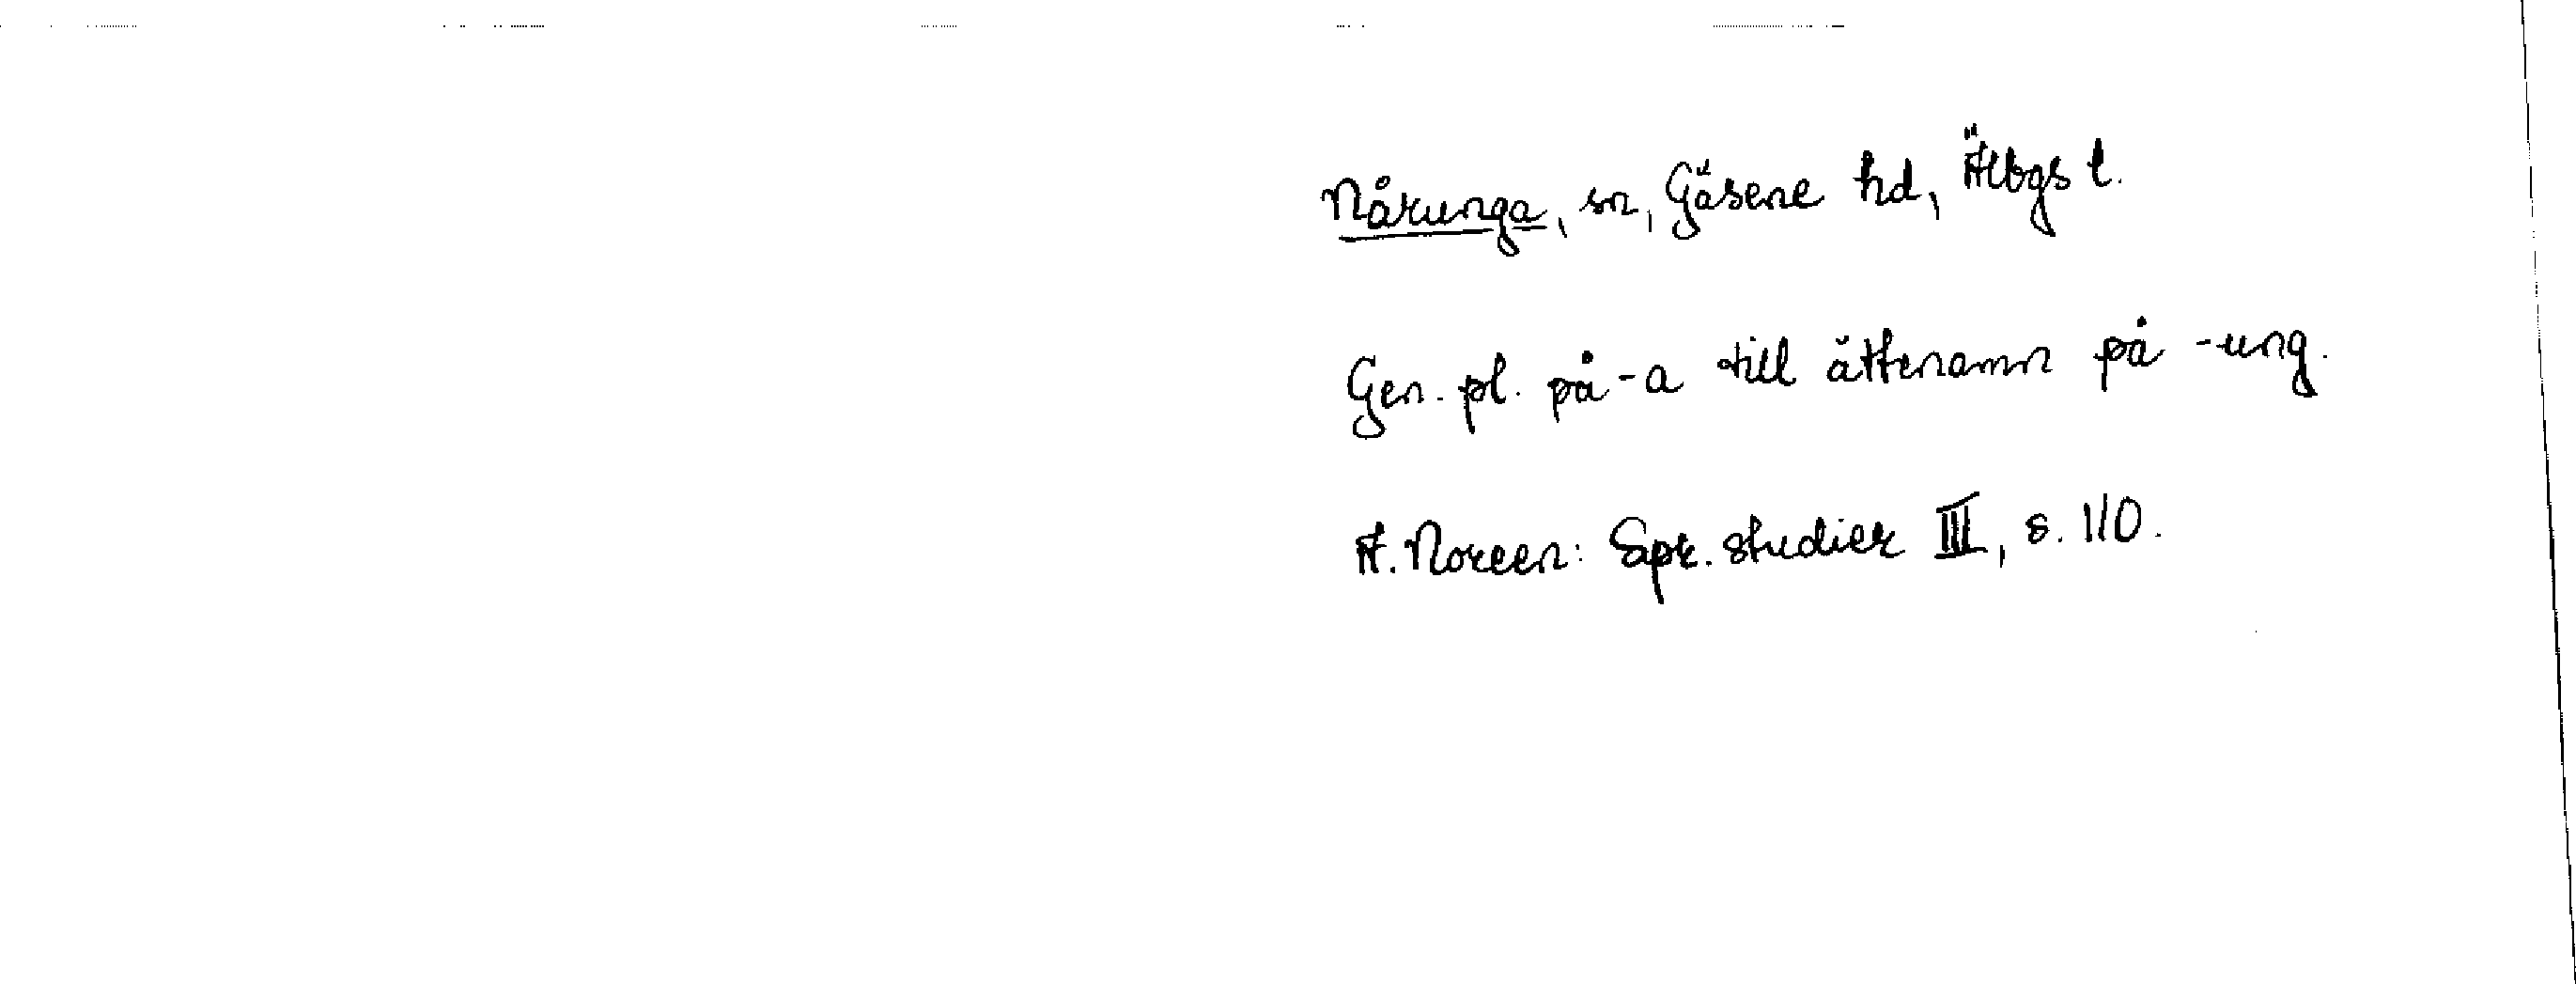 Nårunga, sn, Gäsene hd, Älbgs l.
Gen. pl. på -a till ättenamn på -ung.
A. Noreen: Spr. studier III, s. 110.